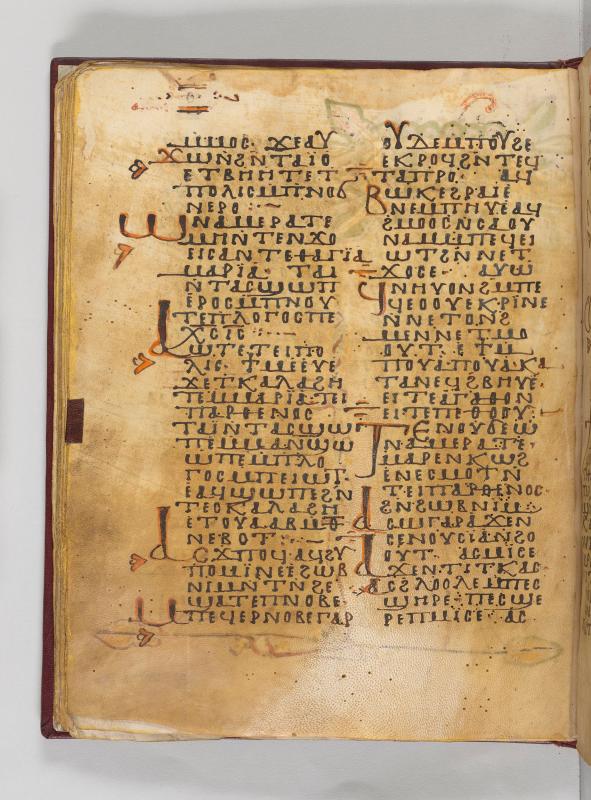 ⲙⲙⲟⲥ· ϫⲉⲁⲩ
ⲭⲱⲛϩⲛⲧⲁⲓⲟ
ⲉⲧⲃⲏⲏⲧⲉⲧ
ⲡⲟⲗⲓⲥⲙⲡⲓⲛⲟϭ
ⲛⲉⲣⲟ·
ⲱⲛⲁⲙⲉⲣⲁⲧⲉ
ⲙⲏⲛⲧⲉⲛϫⲟ
ⲉⲓⲥⲁⲛⲧⲉⲑⲁⲅⲓⲁ
ⲙⲁⲣⲓⲁ· ⲧⲁⲓ
ⲛⲧⲁⲥϣⲱⲡ
ⲉⲣⲟⲥⲙⲡⲛⲟⲩ
ⲧⲉⲡⲗⲟⲅⲟⲥⲡⲉ
ⲭⲥⲓⲥ·
ⲁϣⲧⲉⲧⲉⲓⲡⲟ
ⲗⲓⲥ· ϯⲙⲉⲉⲩⲉ
ϫⲉⲧⲕⲁⲗⲁϩⲏ
ⲡⲉⲙⲁⲣⲓⲁ ⲧⲉⲓ
ⲡⲁⲣⲑⲉⲛⲟⲥ
ⲧⲁⲓⲛⲧⲁⲥϣⲱ
ⲡⲉⲙⲙⲁⲛϣⲱ
ⲱⲡⲉⲙⲡⲗⲟ
ⲅⲟⲥⲙⲡⲉⲓⲱⲧ·
ⲉⲁϥϣⲱⲡⲉϩⲛ
ⲧⲉⲥⲕⲁⲗⲁϩⲏ
ⲉⲧⲟⲩⲁⲁⲃ
ⲛⲉⲃⲟⲧ·
ⲁⲥϫⲡⲟϥ· ⲁϥϩⲩ
ⲡⲟⲙⲓⲛⲉⲉϩⲱⲃ
ⲛⲓⲙⲛⲧⲛϩⲉ
ϣⲁⲧⲉⲡⲛⲟⲃⲉ·
ⲙⲡⲉϥⲉⲣⲛⲟⲃⲉⲅⲁⲣ
ⲟⲩⲗⲉⲙⲡⲟⲩϩⲉ
ⲉⲕⲣⲟϥϩⲛⲧⲉϥ
ⲧⲁⲡⲣⲟ· ⲁϥ
ⲃⲱⲕⲉϩⲣⲁⲓⲉ
ⲙⲡⲏⲩⲉⲁϥ
ϩⲙⲟⲟⲥⲛⲥⲁⲟⲩ
ⲛⲁⲙⲙⲡⲉϥⲉⲓ
ⲱⲧϩⲛⲛⲉⲧ
ϫⲟⲥⲉ· ⲁⲩⲱ
ϥⲛⲏⲩⲟⲛⲙⲡⲉ
ϥⲉⲟⲟⲩⲉⲕⲣⲓⲛⲉ
ⲛⲛⲉⲧⲟⲛϩ
ⲙⲛⲛⲉⲧⲙⲟ
ⲟⲩⲧ· ⲉϯⲙ
ⲡⲟⲩⲁⲡⲟⲩⲁⲕⲁ
ⲧⲁⲛⲉϥϩⲃⲏⲩⲉ
ⲉⲓⲧⲉⲁⲅⲁⲑⲟⲛ
ⲉⲓⲧⲉⲡⲉⲑⲟⲟⲩ·
ⲧⲉⲛⲟⲩϭⲉⲱ
ⲛⲁⲙⲉⲣⲁⲧⲉ·
ⲙⲁⲣⲉⲛⲕⲱϩ
ⲉⲛⲉⲥⲙⲟⲧⲛ
ⲧⲉⲓⲡⲁⲣⲑⲉⲛⲟⲥ
ϩⲛϩⲱⲃⲛⲓⲙ·
ⲁⲥⲱⲅⲁⲣⲁϫⲉⲛ
ⲥⲉⲛⲟⲩⲥⲓⲁⲛϩⲟ
ⲟⲩⲧ· ⲁⲥⲙⲓⲥⲉ
ⲁϫⲉⲛϯⲧⲕⲁⲥ
ⲁⲥϭⲗⲟⲟⲗⲉⲙⲡⲉⲥ
ϣⲏⲣⲉ· ⲡⲉⲥϣⲉ
ⲣⲉⲡⲙⲓⲥⲉ· ⲁⲥ